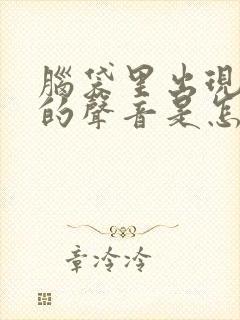 腦袋里出現
的聲音是怎
章冷冷